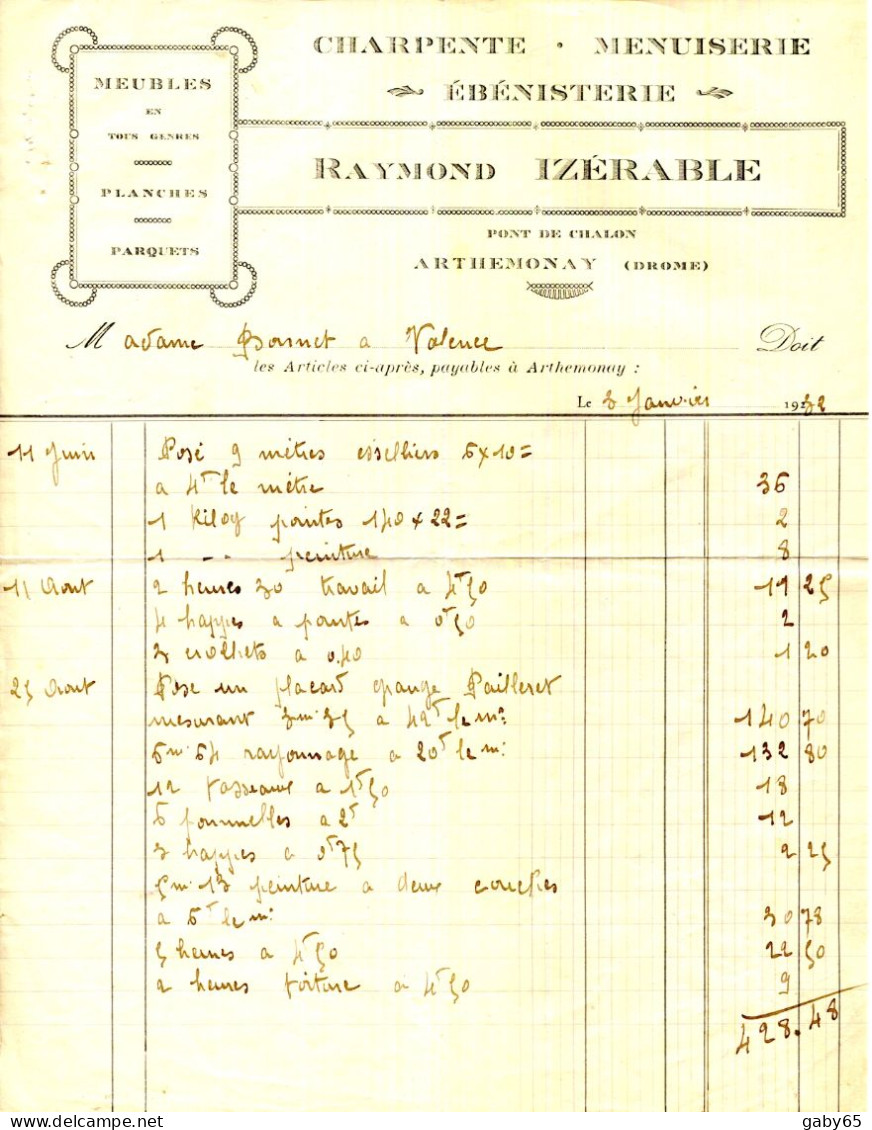 CHARPENTE · MENUISERIE
ÉBÉNISTERIE
MEUBLES
EN
TOUS GENRES
PLANCHES
PARQUETS
RAYMOND IZÉRABLE
PONT DE CHALON
ARTHEMONAY (DROME)
Madame Bonnet a Valence Doit
les Articles ci-après, payables à Arthemonay :
Le 3 Janvier 1932
11 Juin Posé 9 mètres esselliers 6x10=
a 4f le métre 36
1 Kilog pointes 140x22= 2
1 -.. peinture 8
11 Aout 2 heures 30 travail a 4f50 11 25
4 happes a pointes a 0f50 2
3 crochets a 0.40 1 20
25 Aout Pose un placard grange Pailleret
mesurant 3m.35 a 42f le m² 140 70
6m.64 rayonnage a 20f le m² 132 80
12 tasseaux a 1f50 18
6 poumelles a 2f 12
3 happes a 0f75 2 25
5m.13 peinture a deux couches
a 6f le m² 30 78
5 heures a 4f50 22 50
2 heures toiture a 4f50 9
428.48
gaby65